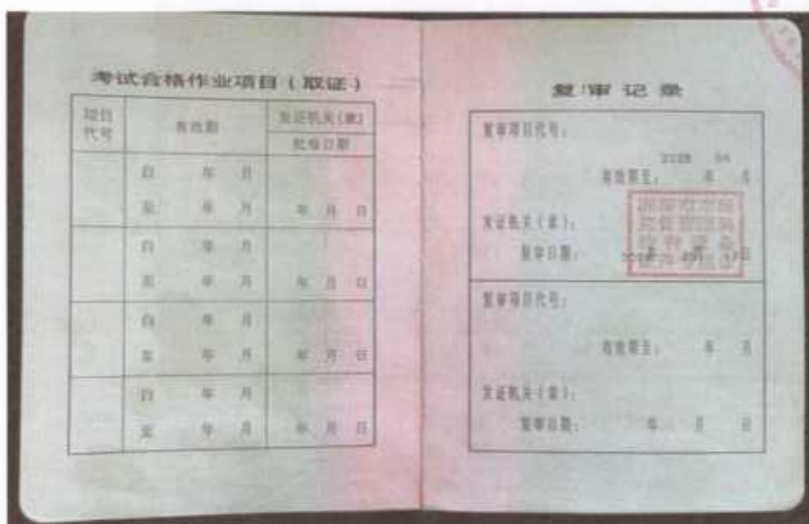 考试合格作业项目(取证)
项目
代号
有效期
发证机关(章)
批准日期
自 年 月
至 年 月
年 月 日
自 年 月
至 年 月
年 月 日
自 年 月
至 年 月
年 月 日
自 年 月
至 年 月
年 月 日
复审记录
复审项目代号:
有效期至: 年 月
发证机关(章):
复审日期:
复审项目代号:
有效期至: 年 月
发证机关(章):
复审日期: 年 月 日